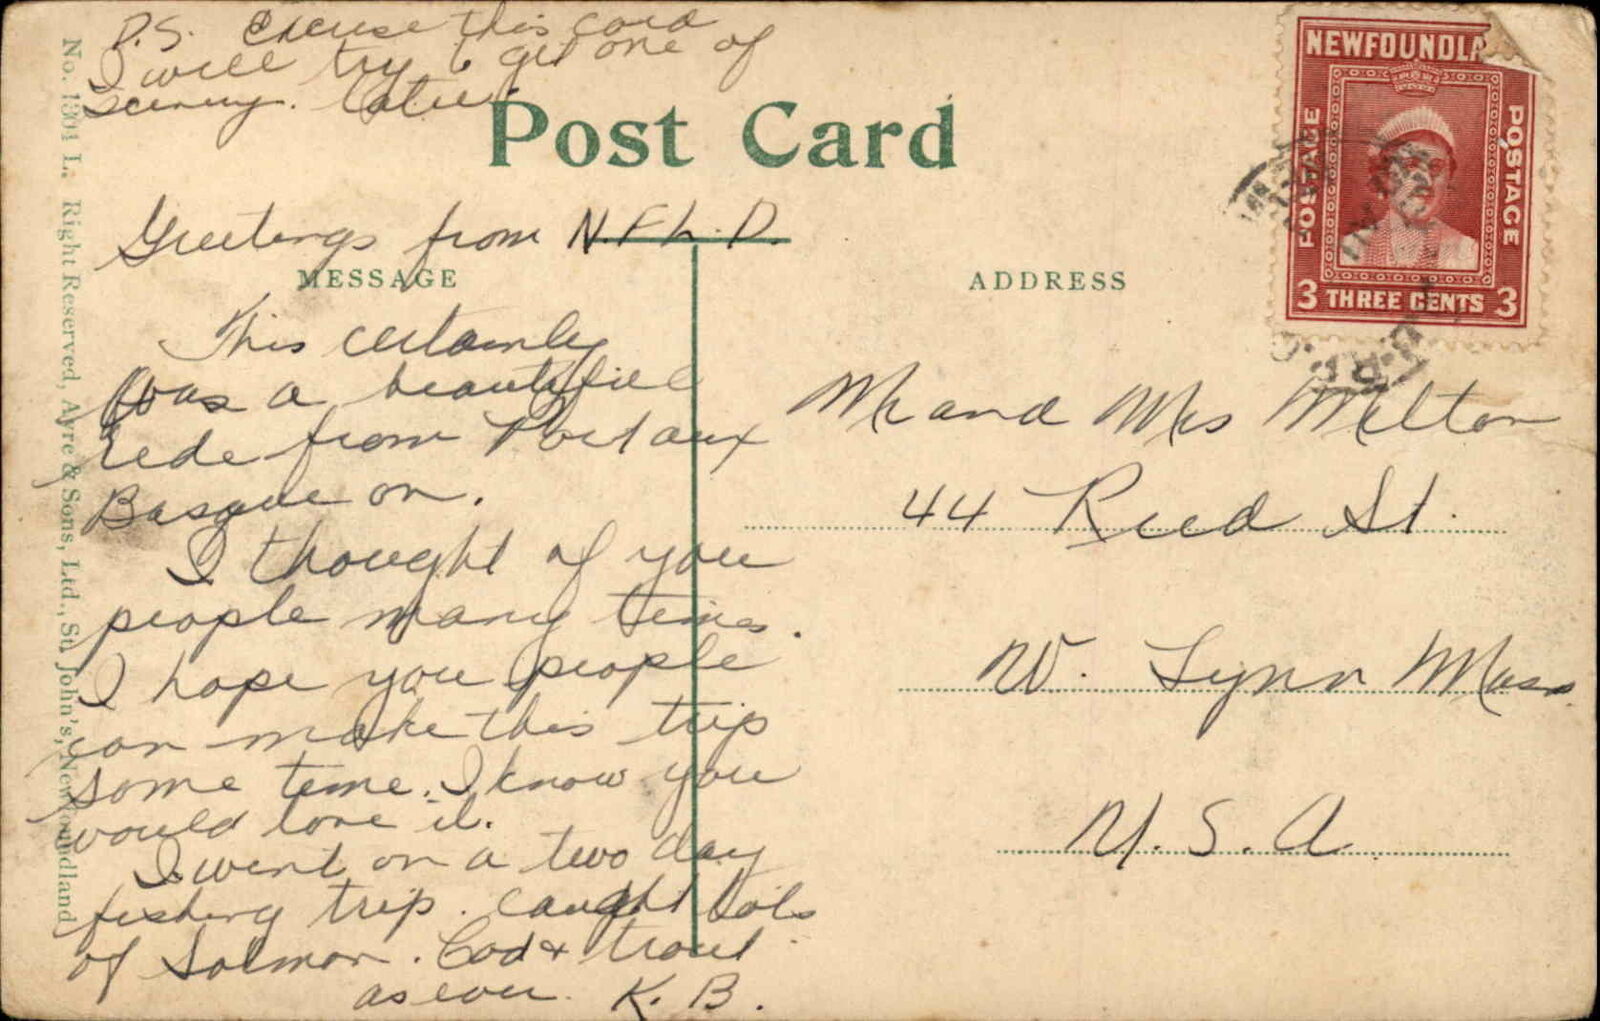 P.S. Excuse this card
I will try to get one of
scenery. Katie.
Post Card
Greetings from N.F.L.D.
MESSAGE
This certainly
was a beautiful
ride from Port aux
Basque on.
I thought of you
people many times.
I hope you people
can make this trip
some time. I know you
would love it.
I went on a two day
fishing trip. caught lots
of Salmon. Cod & trout
as ever. K. B.
ADDRESS
Mr and Mrs Milton
44 Reed St.
W. Lynn Mass
U. S. A.
NEWFOUNDLA
POSTAGE
POSTAGE
3 THREE CENTS 3
No. 1301 L. Right Reserved, Ayre & Sons, Ltd., St. John's, Newfoundland